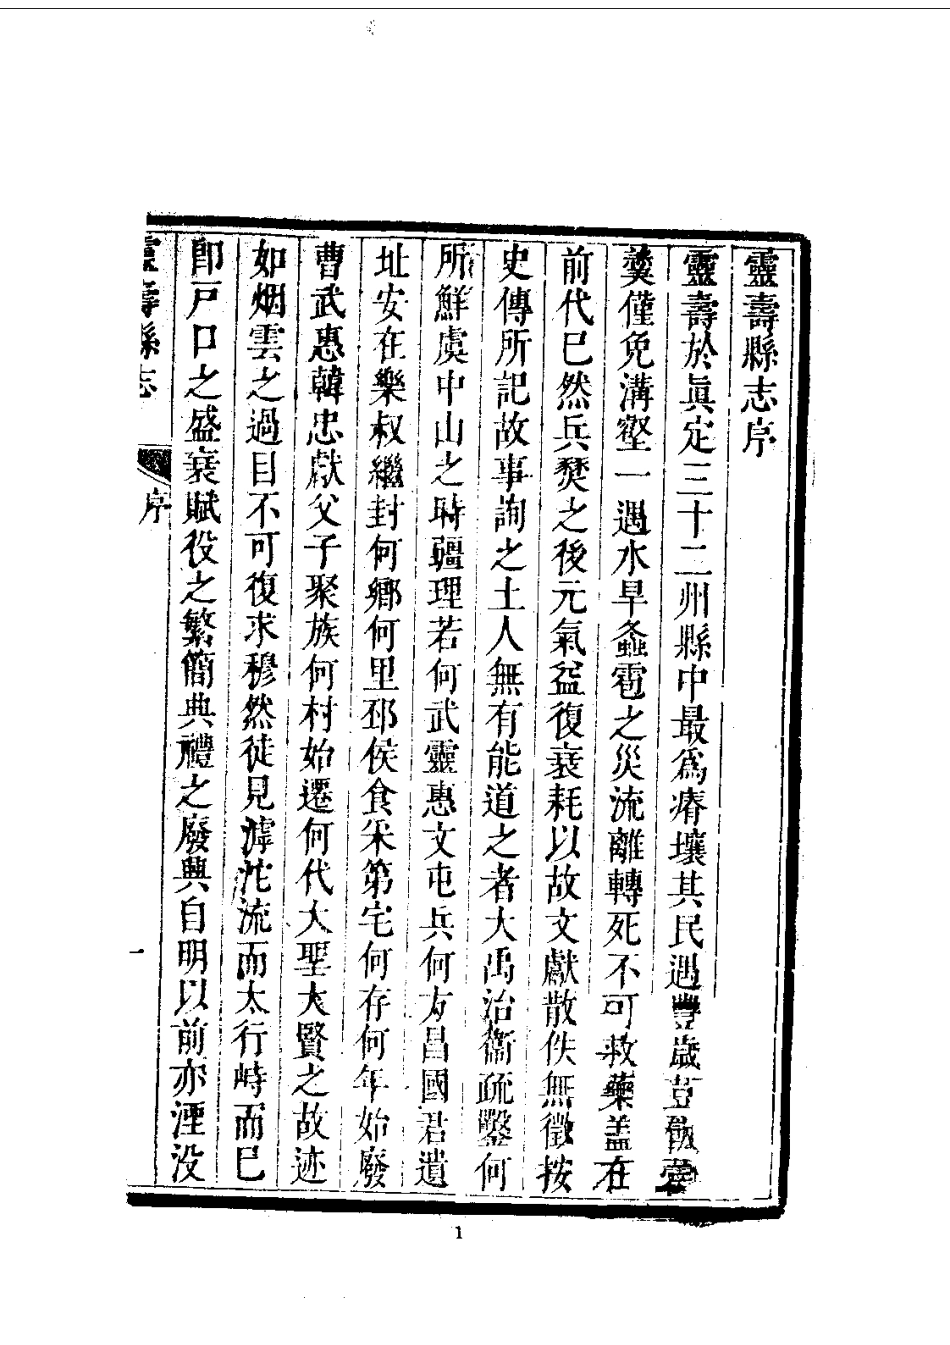 靈壽縣志序
靈壽於眞定三十二州縣中最爲瘠壤其民遇豐歲荳飯藿
羮僅免溝壑一遇水旱螽雹之災流離轉死不可救藥盖在
前代已然兵燹之後元氣益復衰耗以故文獻散佚無徵按
史傳所記故事詢之土人無有能道之者大禹治衞疏鑿何
所鮮虞中山之時疆理若何武靈惠文屯兵何方昌國君遺
址安在樂叔繼封何鄉何里邳侯食采第宅何存何年始廢
曹武惠韓忠獻父子聚族何村始遷何代大聖大賢之故迹
如烟雲之過目不可復求穆然徒見滹沱流而太行峙而巳
卽戸口之盛衰賦役之繁簡典禮之廢興自明以前亦湮没
靈壽縣志
序
一
1